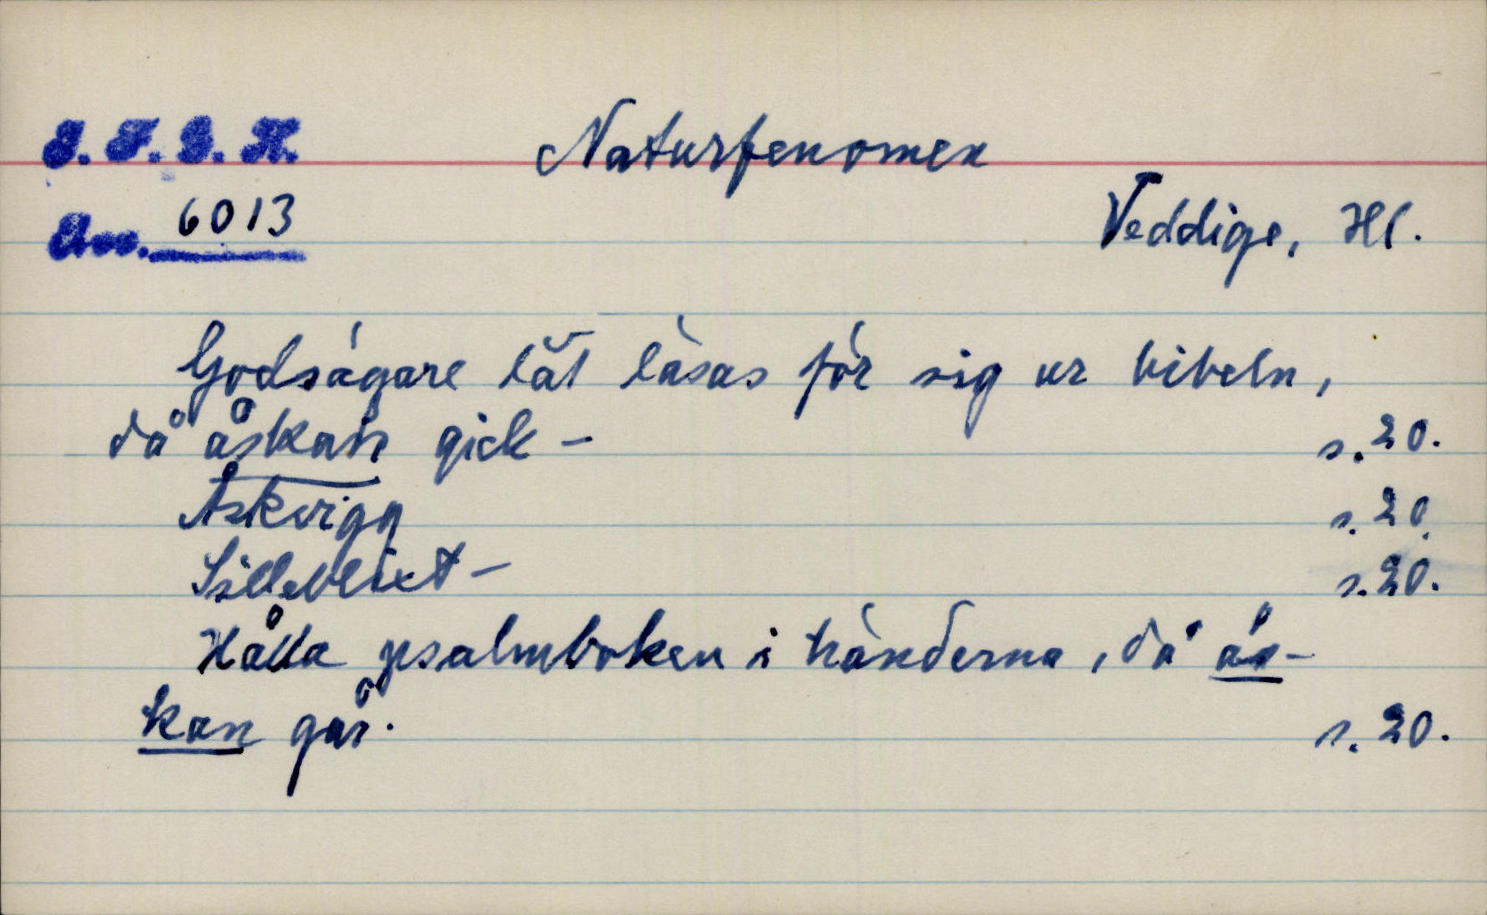 I. F. G. H. Naturfenomen
Acc. 6013
Veddige, Hl.
Godsägare lät läsas för sig ur bibeln,
då åskan gick – s. 20.
Åskvigg s. 20.
Sillablixt – s. 20.
Hålla psalmboken i händerna, då ås-
kan går. s. 20.